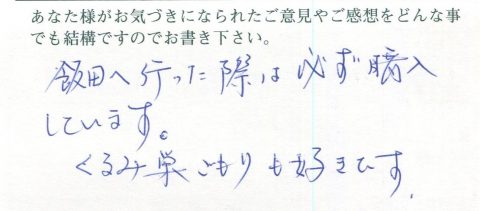 あなた様がお気づきになられたご意見やご感想をどんな事
でも結構ですのでお書き下さい。
飯田へ行った際は必ず購入
しています。
くるみ巣ごもりも好きです.